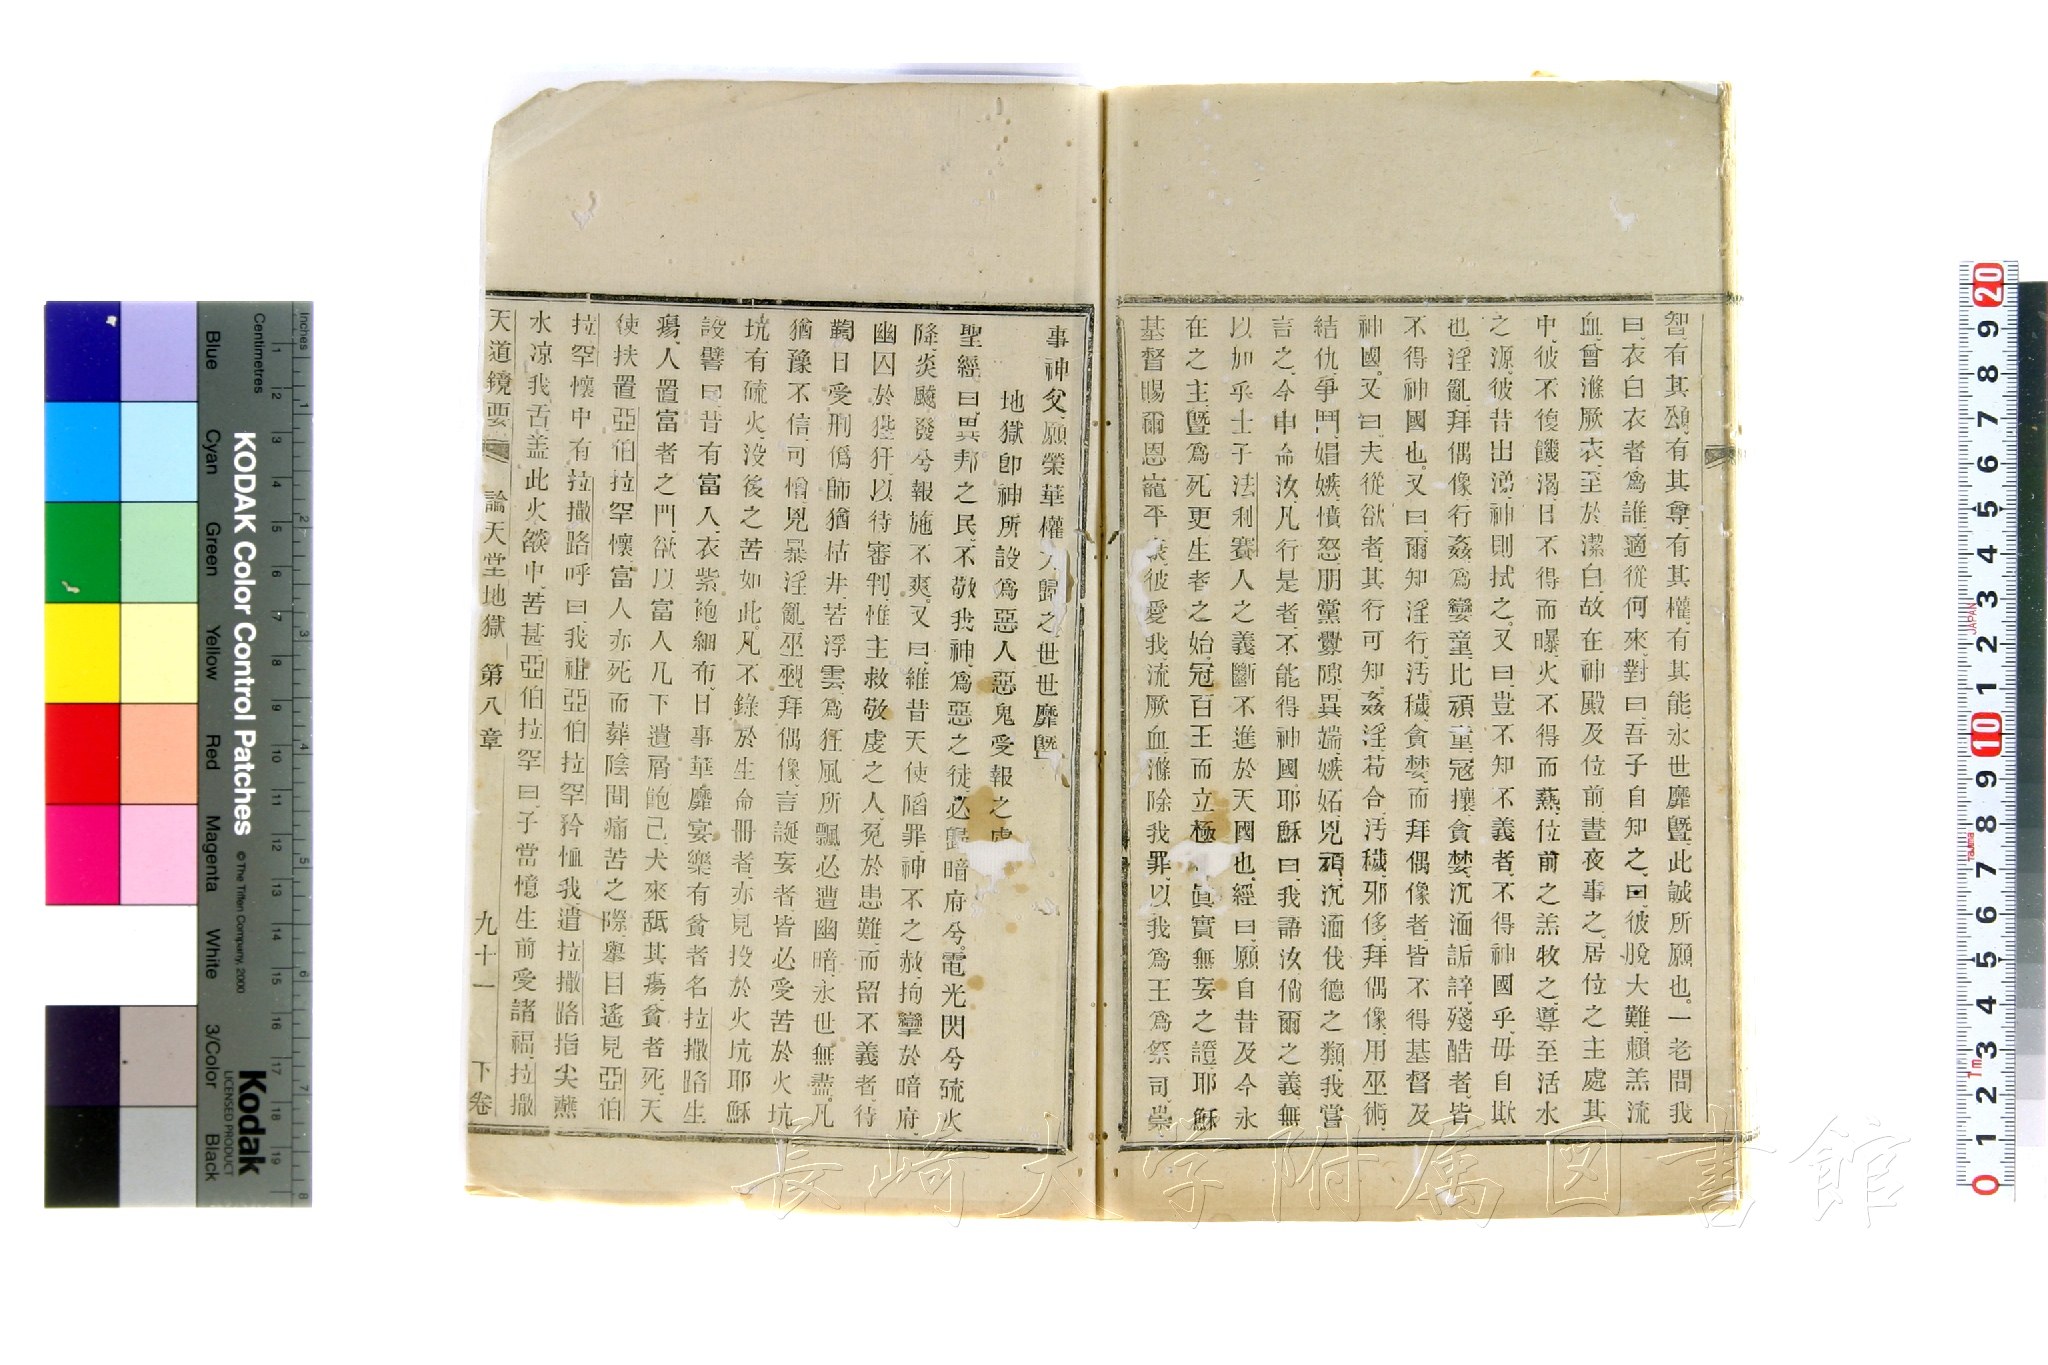 智、有其頌、有其尊、有其權、有其能、永世靡曁、此誠所願也。一老問我
曰、衣白衣者爲誰、適從何來、對曰、吾子自知之、曰、彼脫大難、賴羔流
血、曾滌厥衣、至於潔白、故在神殿及位前、晝夜事之、居位之主處其
中、彼不復饑渴、日不得而曝、火不得而爇、位前之羔牧之、導至活水
之源、彼昔出涕、神則拭之。又曰、豈不知不義者、不得神國乎、毋自欺
也、淫亂、拜偶像、行姦、爲孌童、比頑童、寇攘、貪婪、沉湎、詬誶、殘酷者、皆
不得神國也。又曰、爾知淫行、汚穢、貪婪而拜偶像者、皆不得基督及
神國。又曰、夫從欲者、其行可知、姦淫、苟合、汚穢、邪侈、拜偶像、用巫術、
結仇、爭鬥、媢嫉、憤怒、朋黨、釁隙、異端、嫉妬、兇頑、沉湎、伐德之類、我嘗
言之、今申命汝、凡行是者、不能得神國、耶穌曰、我語汝、倘爾之義、無
以加乎士子法利賽人之義、斷不進於天國也、經曰、願自昔及今永
在之主、曁爲死更生者之始、冠百王而立極、眞實無妄之證、耶穌
基督、賜爾恩寵平康、彼愛我、流厥血、滌除我罪、以我爲王爲祭司、崇
事神父、願榮華權 歸之、世世靡曁
地獄卽神所設爲惡人惡鬼受報之處
聖經曰、異邦之民、不敬我神、爲惡之徒、必歸暗府兮。電光閃兮硫火
降、炎飈發兮報施不爽。又曰、維昔天使陷罪、神不之赦、拘攣於暗府、
幽囚於狴犴、以待審判、惟主救敬虔之人、免於患難、而留不義者、待
鞫日受刑、僞師猶枯井、若浮雲、爲狂風所飄、必遭幽暗、永世無盡、凡
猶豫不信、可憎、兇暴、淫亂、巫覡、拜偶像、言誕妄者、皆必受苦於火坑、
坑有硫火、沒後之苦如此。凡不錄於生命冊者、亦見投於火坑、耶穌
設譬曰、昔有富人、衣紫袍細布、日事華靡宴樂、有貧者名拉撒路、生
瘍、人置富者之門、欲以富人几下遺屑飽己、犬來舐其瘍、貧者死、天
使扶置亞伯拉罕懷、富人亦死而葬、陰間痛苦之際、擧目遙見亞伯
拉罕懷中有拉撒路、呼曰、我祖亞伯拉罕、矜恤我、遣拉撒路指尖蘸
水、凉我舌、盖此火燄中、苦甚、亞伯拉罕曰、子當憶生前受諸福、拉撒
天道鏡要 論天堂地獄 第八章 九十一 下卷
KODAK Color Control Patches
© The Tiffen Company, 2000
Kodak
LICENSED PRODUCT
Inches
Centimetres
Blue Cyan Green Yellow Red Magenta White 3/Color Black
長崎大学附属図書館
JAPAN